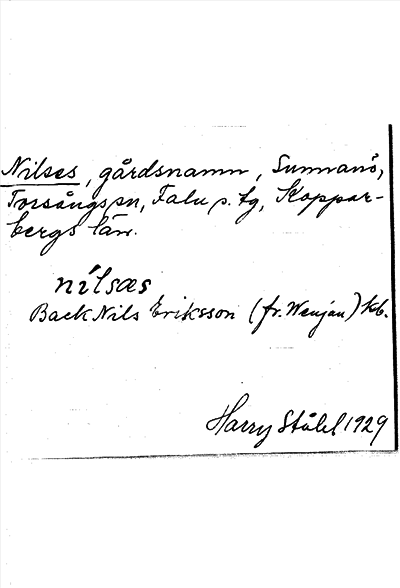 Nilses, gårdsnamn, Sunnanö,
Torsångs sn, Falu s. tg, Koppar-
bergs län.
nilsæs
Back Nils Eriksson (fr. Wenjan) kb.
Harry Ståhl 1929